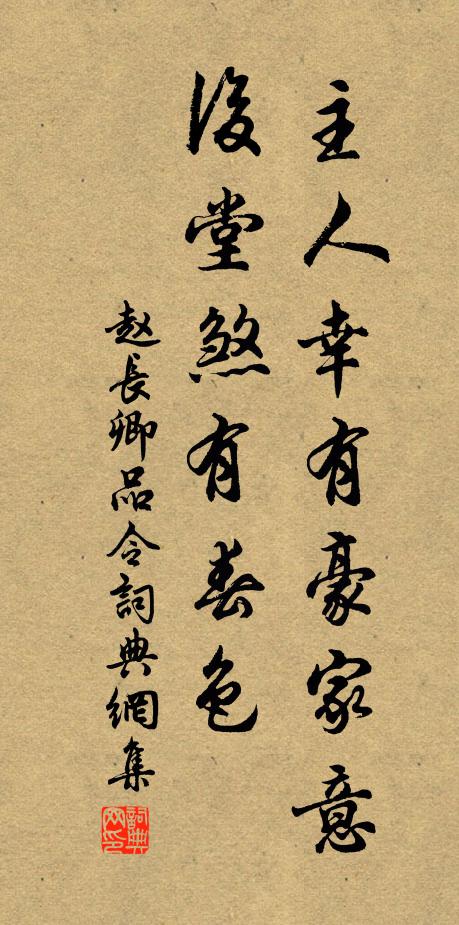 主人幸有豪家意
後堂煞有春色
赵長卿品令詞典網集
詞典網印